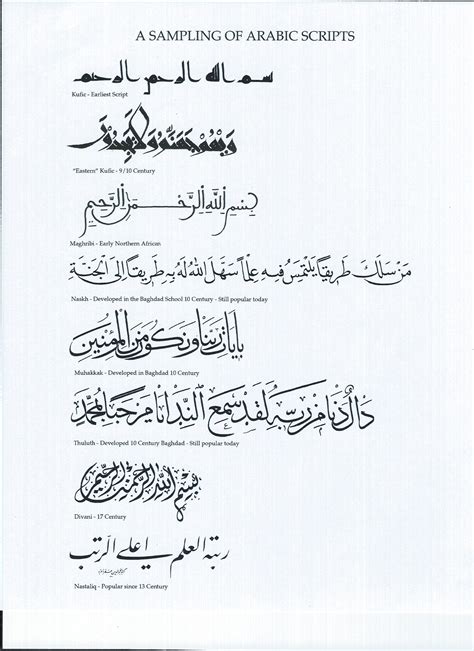 A SAMPLING OF ARABIC SCRIPTS
بسم الله الرحمن الرحيم
Kufic - Earliest Script
"Eastern" Kufic - 9/10 Century
بِسْمِ اللهِ الرَّحْمـٰنِ الرَّحِيمِ
Maghribi - Early Northern African
مَنْ سَلَكَ طَرِيقًا يَلْتَمِسُ فِيهِ عِلْمًا سَهَّلَ اللهُ لَهُ بِهِ طَرِيقًا إِلَى الْجَنَّةِ
Naskh - Developed in the Baghdad School 10 Century - Still popular today
بآيات ربنا ونكون من المؤمنين
Muhakkak - Developed in Baghdad 10 Century
Thuluth - Developed 10 Century Baghdad - Still popular today
بسم الله الرحمن الرحيم
Divani - 17 Century
رتبة العلم اعلى الرتب
Nastaliq - Popular since 13 Century